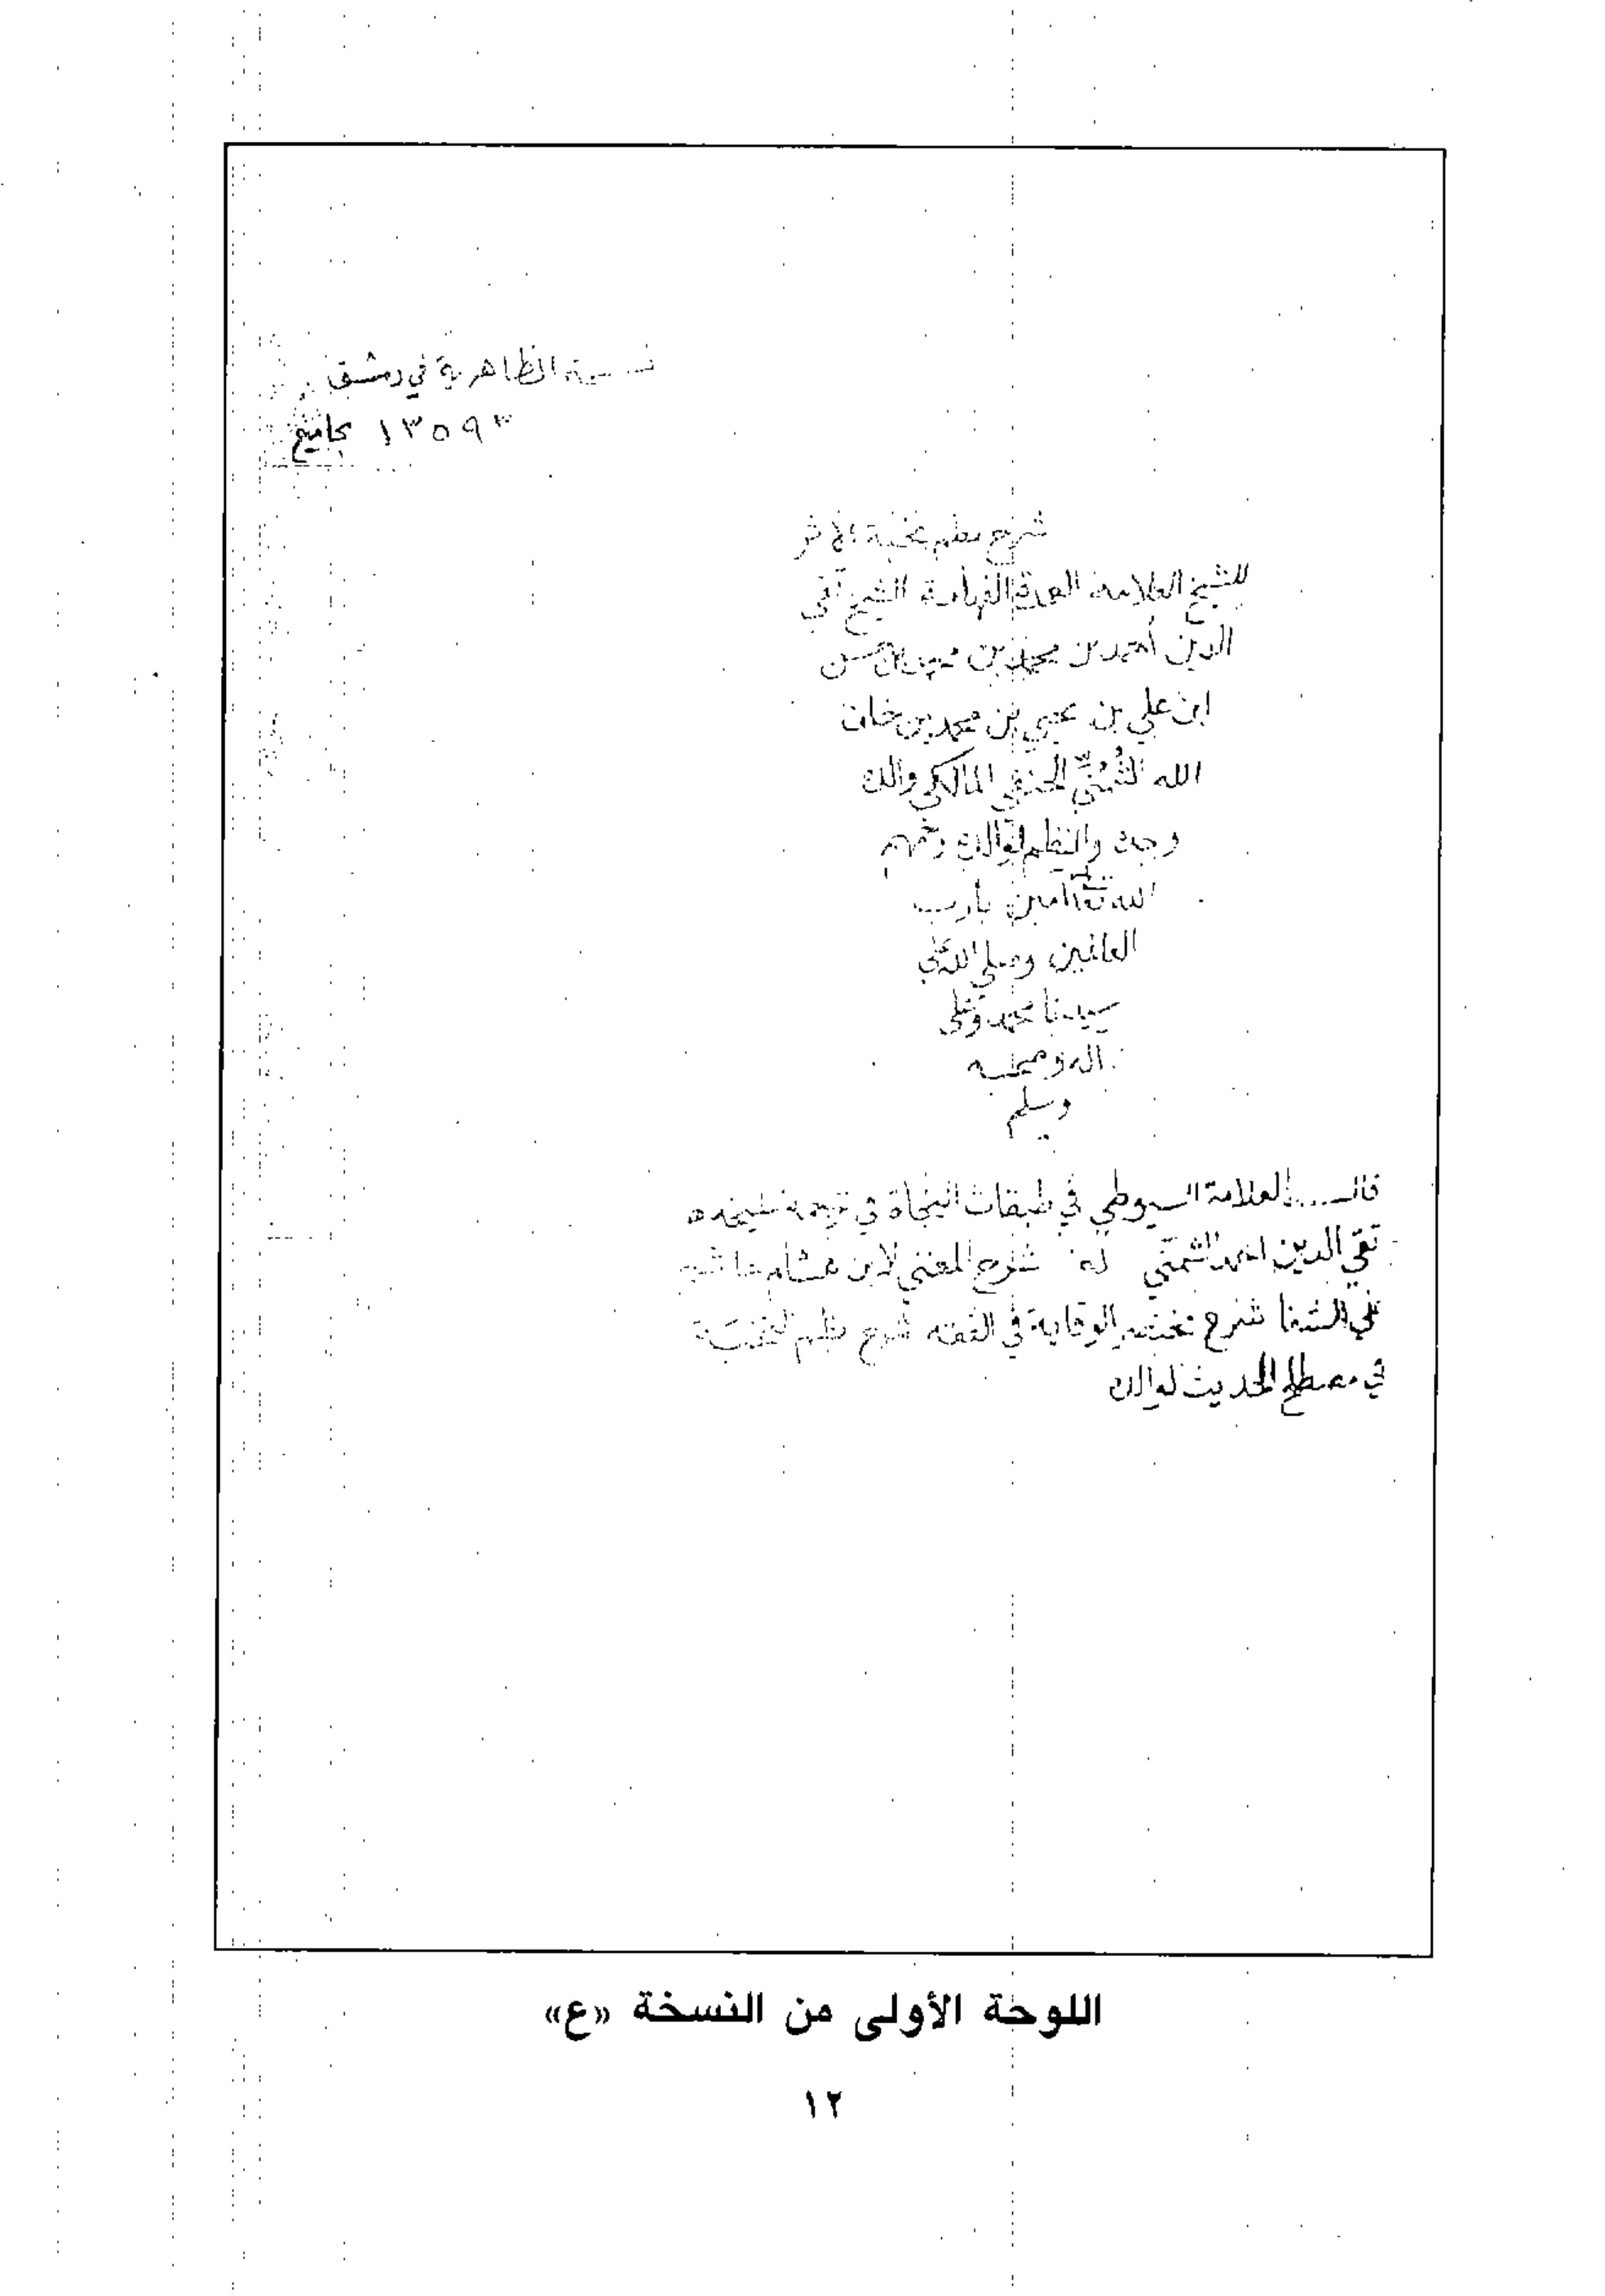 نسخة الظاهرية في دمشق
١٣٥٩٣ مجاميع
شرح نظم نخبة الأثر
للشيخ العلامة العمدة الفهامة الشيخ تقي
الدين أحمد بن محمد بن محمد بن حسن
ابن علي بن يحيى بن محمد بن خلف
الله الشُمُنِّي الحنفي المالكي والده
وجده والنظم لوالده رحمهم
الله تعالى امين يا رب
العالمين وصلى الله على
سيدنا محمد وعلى
اله وصحبه
وسلم
قال العلامة السيوطي في طبقات النحاة في ترجمة شيخه
تقي الدين احمد الشمني له شرح المغني لابن هشام حاشية
على الشفا شرح مختصر الوقاية في الفقه شرح نظم النخبة
في مصطلح الحديث لوالده
اللوحة الأولى من النسخة «ع»
١٢